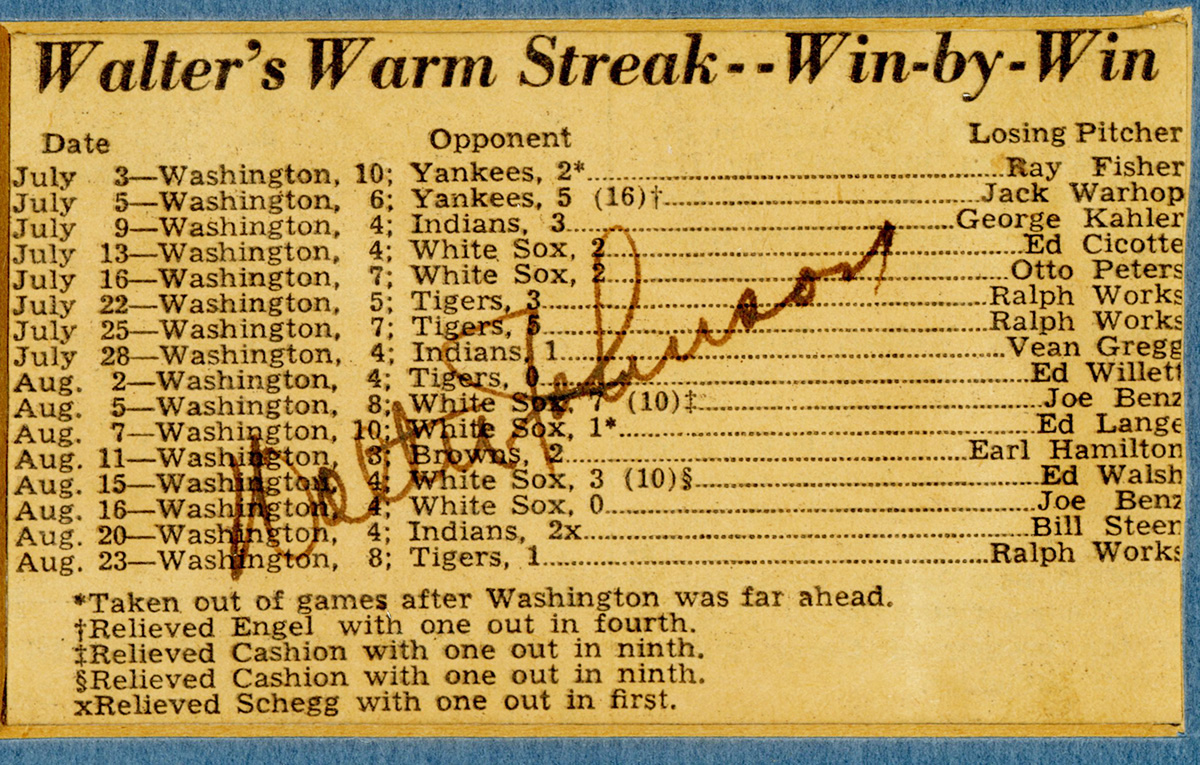 Walter's Warm Streak--Win-by-Win
Date Opponent Losing Pitcher
July 3—Washington, 10; Yankees, 2*........Ray Fisher
July 5—Washington, 6; Yankees, 5 (16)†........Jack Warhop
July 9—Washington, 4; Indians, 3........George Kahler
July 13—Washington, 4; White Sox, 2........Ed Cicotte
July 16—Washington, 7; White Sox, 2........Otto Peters
July 22—Washington, 5; Tigers, 3........Ralph Works
July 25—Washington, 7; Tigers, 5........Ralph Works
July 28—Washington, 4; Indians, 1........Vean Gregg
Aug. 2—Washington, 4; Tigers, 0........Ed Willett
Aug. 5—Washington, 8; White Sox, 7 (10)‡........Joe Benz
Aug. 7—Washington, 10; White Sox, 1*........Ed Lange
Aug. 11—Washington, 3; Browns, 2........Earl Hamilton
Aug. 15—Washington, 4; White Sox, 3 (10)§........Ed Walsh
Aug. 16—Washington, 4; White Sox, 0........Joe Benz
Aug. 20—Washington, 4; Indians, 2x........Bill Steen
Aug. 23—Washington, 8; Tigers, 1........Ralph Works
Walter Johnson
*Taken out of games after Washington was far ahead.
†Relieved Engel with one out in fourth.
‡Relieved Cashion with one out in ninth.
§Relieved Cashion with one out in ninth.
xRelieved Schegg with one out in first.